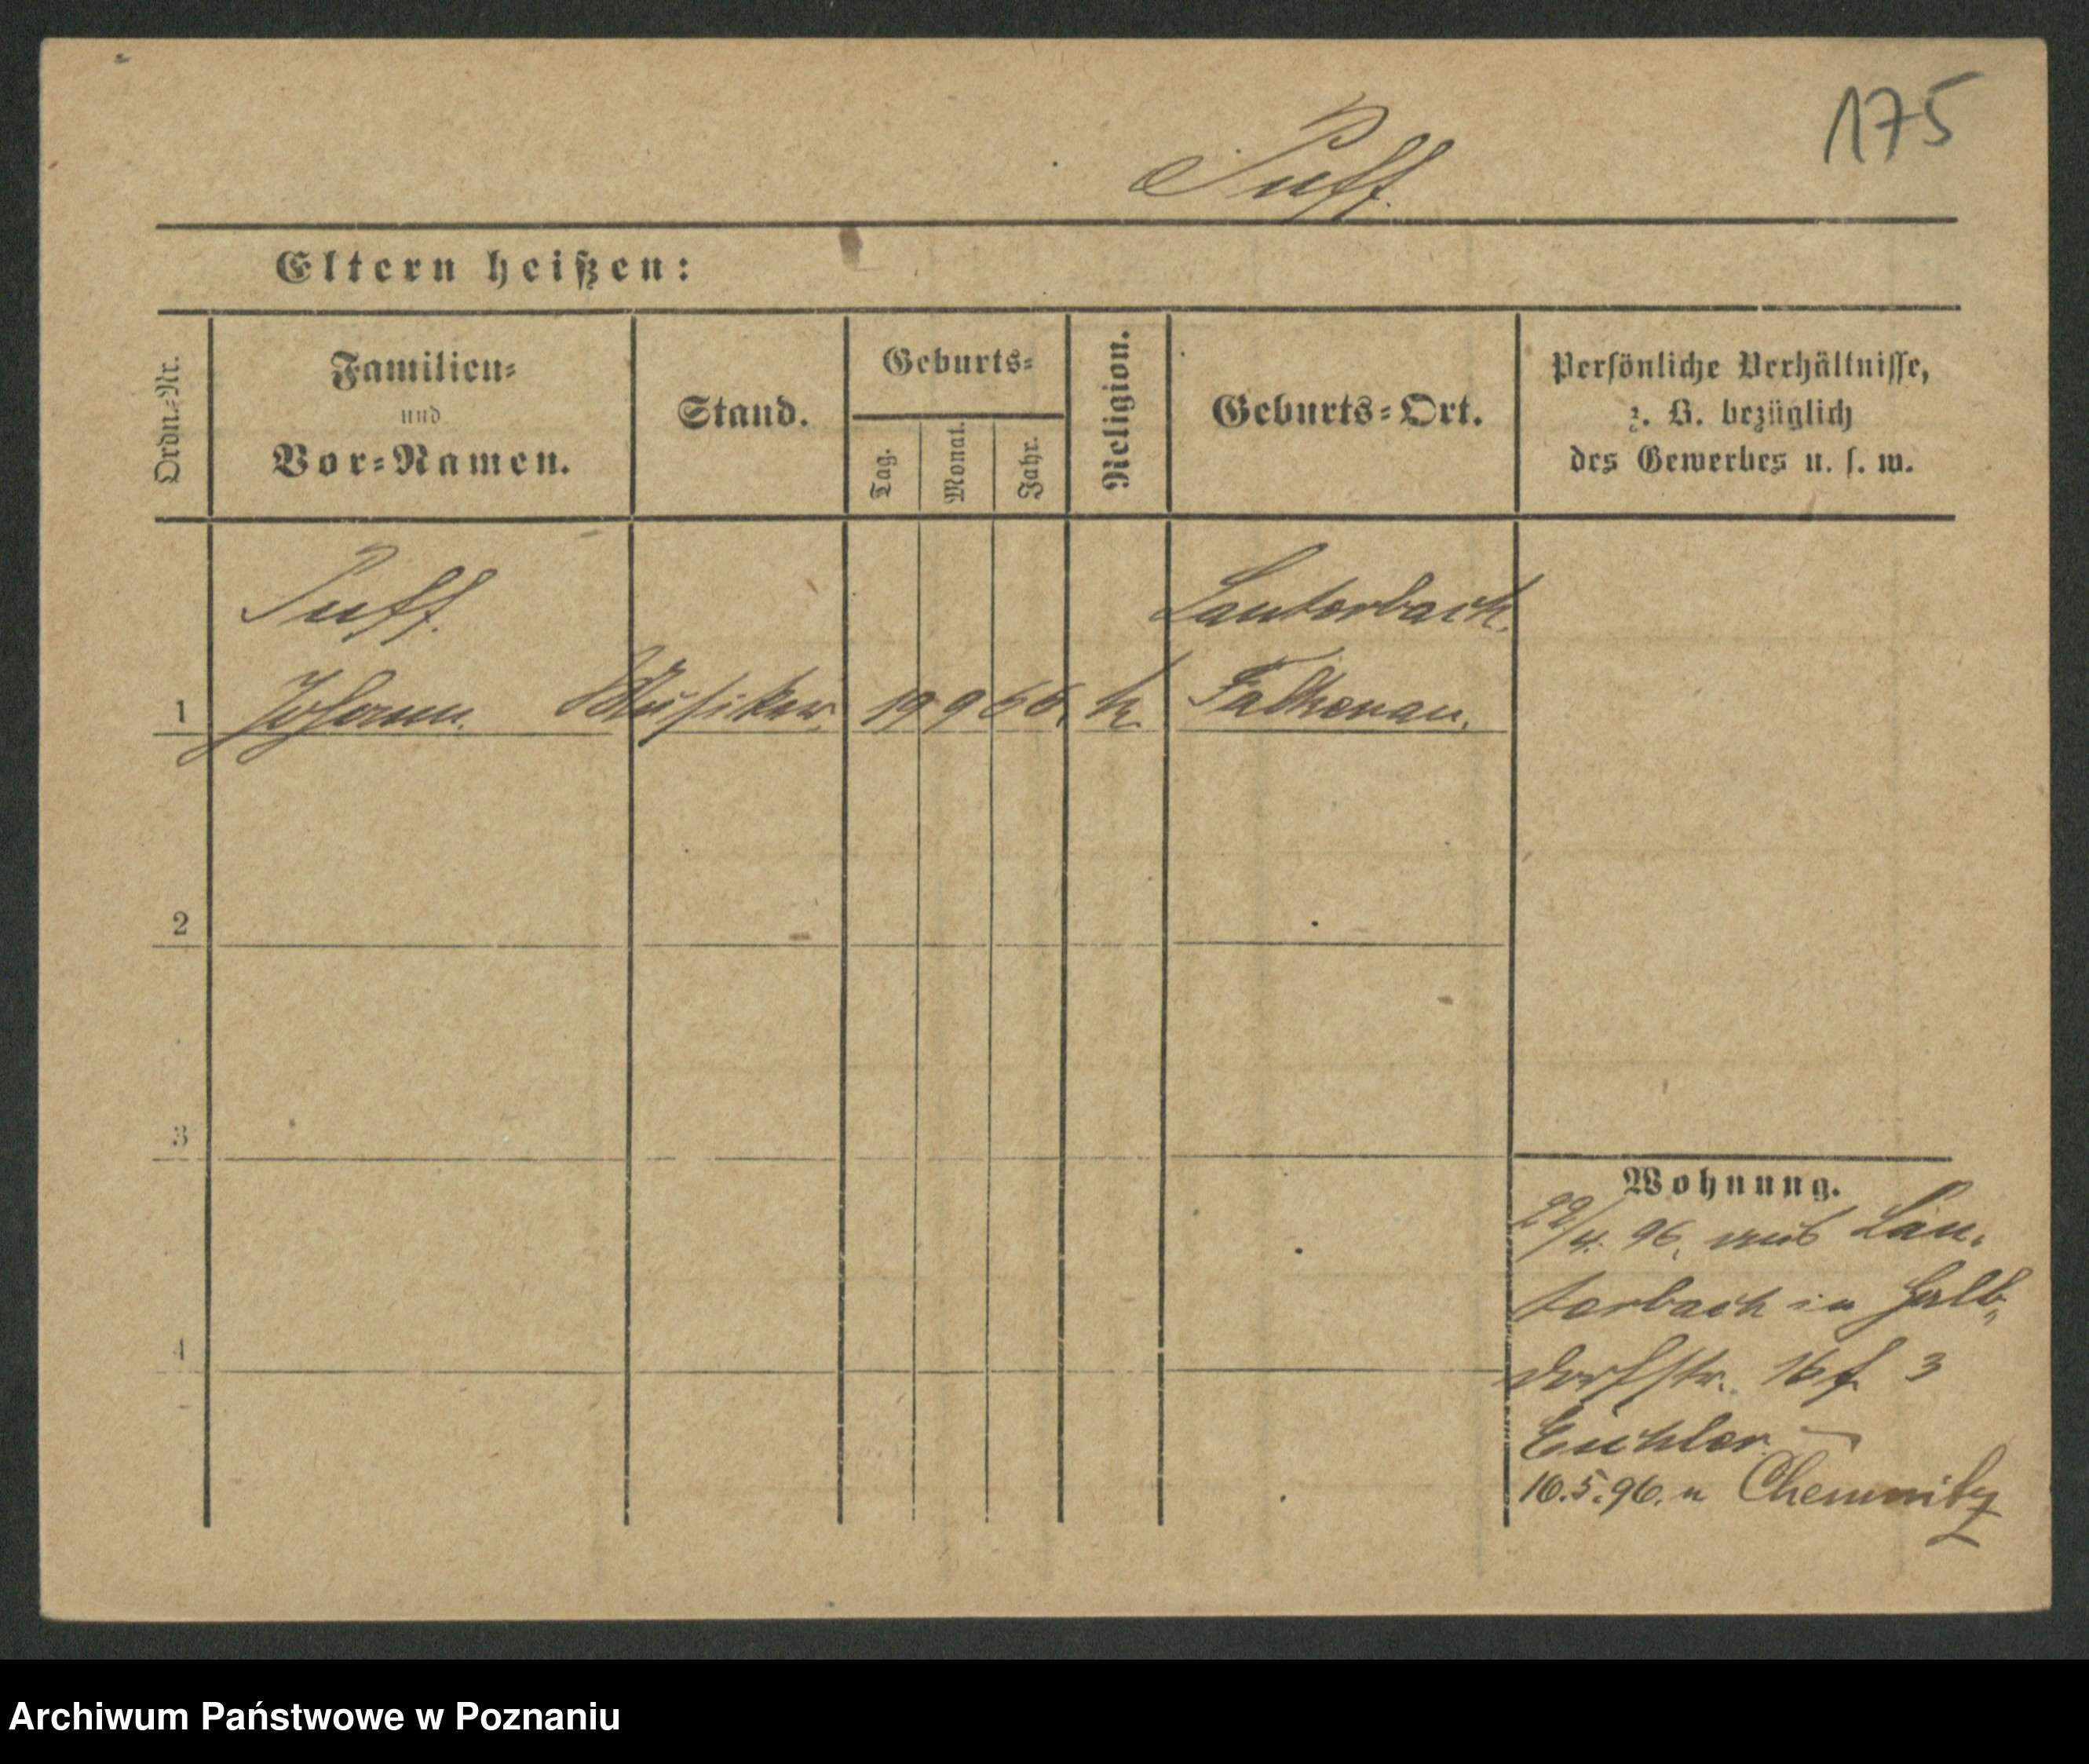 175
Puff.
Eltern heißen:
Ordn.-Nr.
Familien-
und
Vor-Namen.
Stand.
Geburts-
Tag.
Monat.
Jahr.
Religion.
Geburts-Ort.
Persönliche Verhältnisse,
z. B. bezüglich
des Gewerbes u. s. w.
Puff.
Lauterbach.
1 Johann. Musiker. 19 9 66. k. Falkenau.
2
3
4
Wohnung.
22/4. 96. aus Lau-
terbach in Halb-
dorfstr. 16 f. 3
Eichler
10.5.96. n Chemnitz
Archiwum Państwowe w Poznaniu